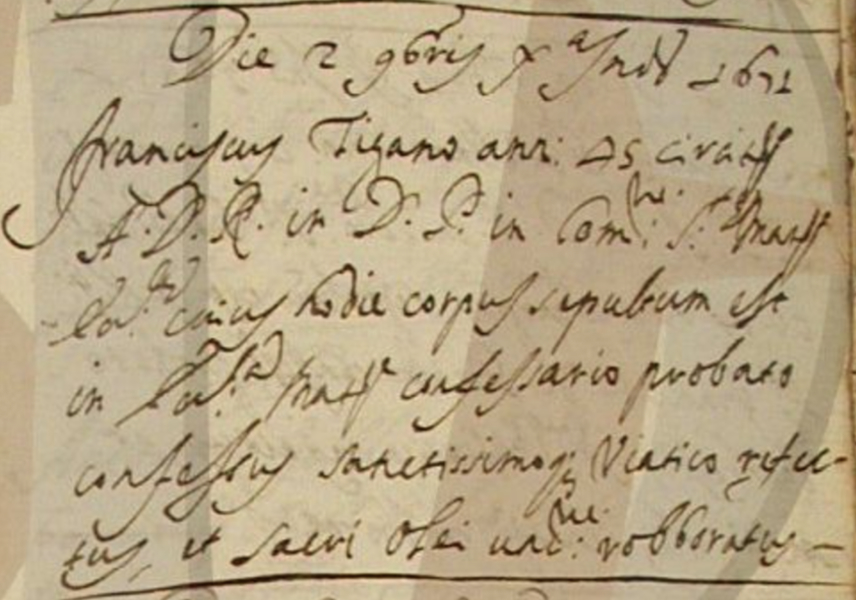 Die 2 9bris Xª Indˢ 1671
Franciscus Tigano ann: 45 circiter
A. D. R. in D. S. in Comⁿᵉ: S. Matris
cuius hodie corpus sepultum est
in Matris confessario probato
confessus sanctissimoq; Viatico refec-
tus, et sacri Olei uncⁿᵉ: robboratus —